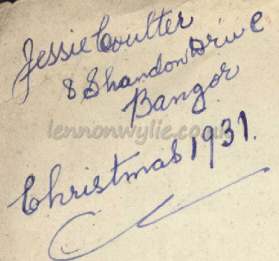 Jessie Coulter
8 Shandon Drive
Bangor
lennonwylie.co.uk
Christmas 1931.